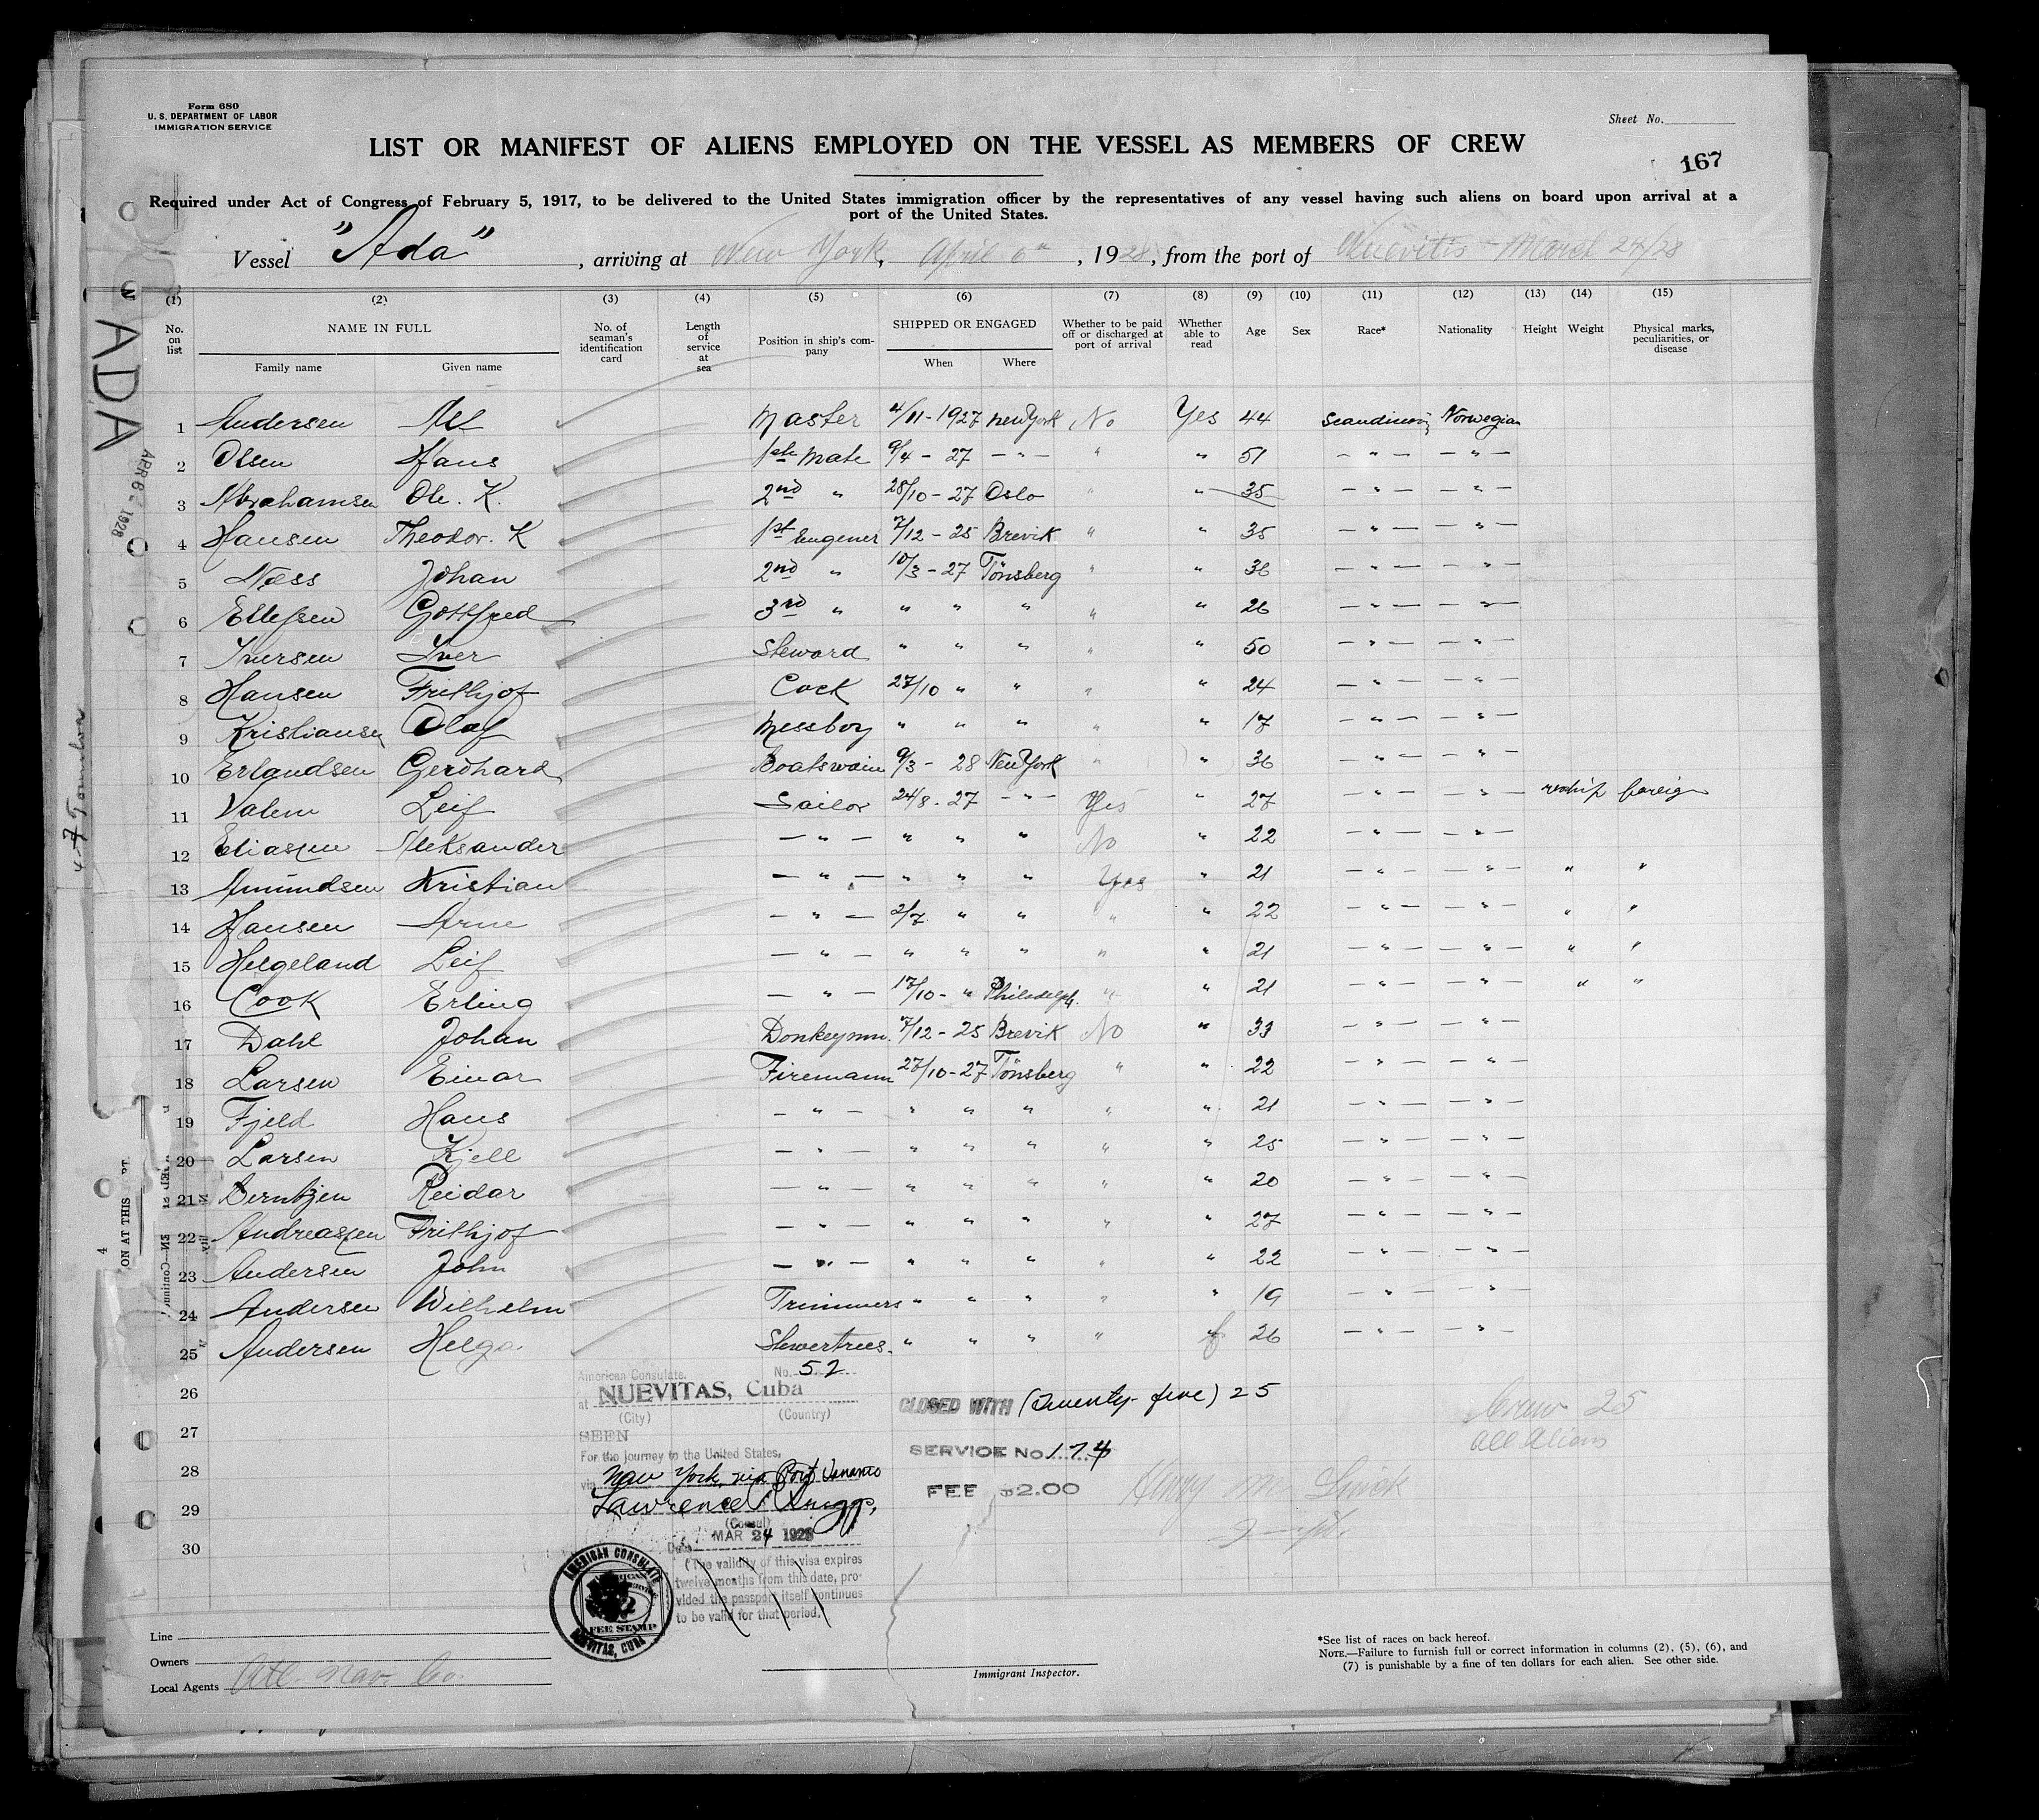 Form 680
U. S. DEPARTMENT OF LABOR
IMMIGRATION SERVICE
Sheet No.
LIST OR MANIFEST OF ALIENS EMPLOYED ON THE VESSEL AS MEMBERS OF CREW
167
Required under Act of Congress of February 5, 1917, to be delivered to the United States immigration officer by the representatives of any vessel having such aliens on board upon arrival at a
port of the United States.
Vessel "Ada", arriving at New York, April 6th, 1928, from the port of Nuevitis - March 24/28
(1) (2) (3) (4) (5) (6) (7) (8) (9) (10) (11) (12) (13) (14) (15)
No. on list NAME IN FULL Family name Given name No. of seaman's identification card Length of service at sea Position in ship's company SHIPPED OR ENGAGED When Where Whether to be paid off or discharged at port of arrival Whether able to read Age Sex Race* Nationality Height Weight Physical marks, peculiarities, or disease
1 Andersen Alf Master 4/11-1927 New York No Yes 44 Norwegian
2 Olsen Hans 1ste Mate 9/4 - 27 — " — " " 51 — " — — " —
3 Abrahamsen Ole. K. 2nd " 28/10 - 27 Oslo " " 35 — " — — " —
4 Hansen Theodor. K 1st Eugener 7/12 - 25 Brevik " " 35 — " — — " —
5 Næss Johan 2nd " 10/3 - 27 Tönsberg " " 36 — " — — " —
6 Ellefsen Gottfred 3rd " " " " " " 26 — " — — " —
7 Iversen Iver Steward " " " " " 50 — " — — " —
8 Hansen Frithjof Cock 27/10 " " " " 24 — " — — " —
9 Kristiansen Olaf Messboy " " " " " 17 — " — — " —
10 Erlandsen Gerdhard Boatswain 9/3 - 28 New York " " 36 — " — "
11 Valem Leif Sailor 24/8 - 27 — " — Yes " 27 — " — — " — reship foreign
12 Eliassen Aleksander — " — " " " No " 22 — " — — " —
13 Amundsen Kristian — " — " " " Yes " 21 — " — — " — " "
14 Hansen Arne — " — 2/7 " " " " 22 — " — — " — " "
15 Helgeland Leif — " — " " " " " 21 — " — — " — " "
16 Cook Erling — " — 17/10 - " Philadelph. " " 21 — " — — " — " "
17 Dahl Johan Donkeymn. 7/12 - 25 Brevik No " 33 — " — — " —
18 Larsen Einar Firemann 27/10 - 27 Tönsberg " " 22 " — "
19 Fjeld Hans — " — " " " " " 21 — " — — " —
20 Larsen Kjell — " — " " " " " 25 — " — — " —
21 Berntzen Reidar — " — " " " " " 20 — " — — " —
22 Andreassen Frithjof — " — " " " " " 27 — " — — " —
23 Andersen John — " — " " " " " 22 — " — — " —
24 Andersen Wilhelm Trimmers " " " " " 19 — " — — " —
25 Andersen Helga. Stewertrees. " " " " 26 — " — — " —
26
27
28
29
30
American Consulate. No. 52
at NUEVITAS, Cuba
(City) (Country)
SEEN
For the journey to the United States,
via New York, via Port
Lawrence
(Consul)
Date MAR 24 1928
(The validity of this visa expires
twelve months from this date, pro-
vided the passport itself continues
to be valid for that period.
AMERICAN CONSULATE
FEE STAMP
NUEVITAS, CUBA
CLOSED WITH (Twenty-five) 25
SERVICE No. 174
FEE $2.00
Crew 25
all aliens
Henry
Line
Owners
Local Agents Atl. Nav. Co.
Immigrant Inspector.
*See list of races on back hereof.
NOTE.—Failure to furnish full or correct information in columns (2), (5), (6), and
(7) is punishable by a fine of ten dollars for each alien. See other side.
ADA
APR 6 - 1928
ON AT THIS
4